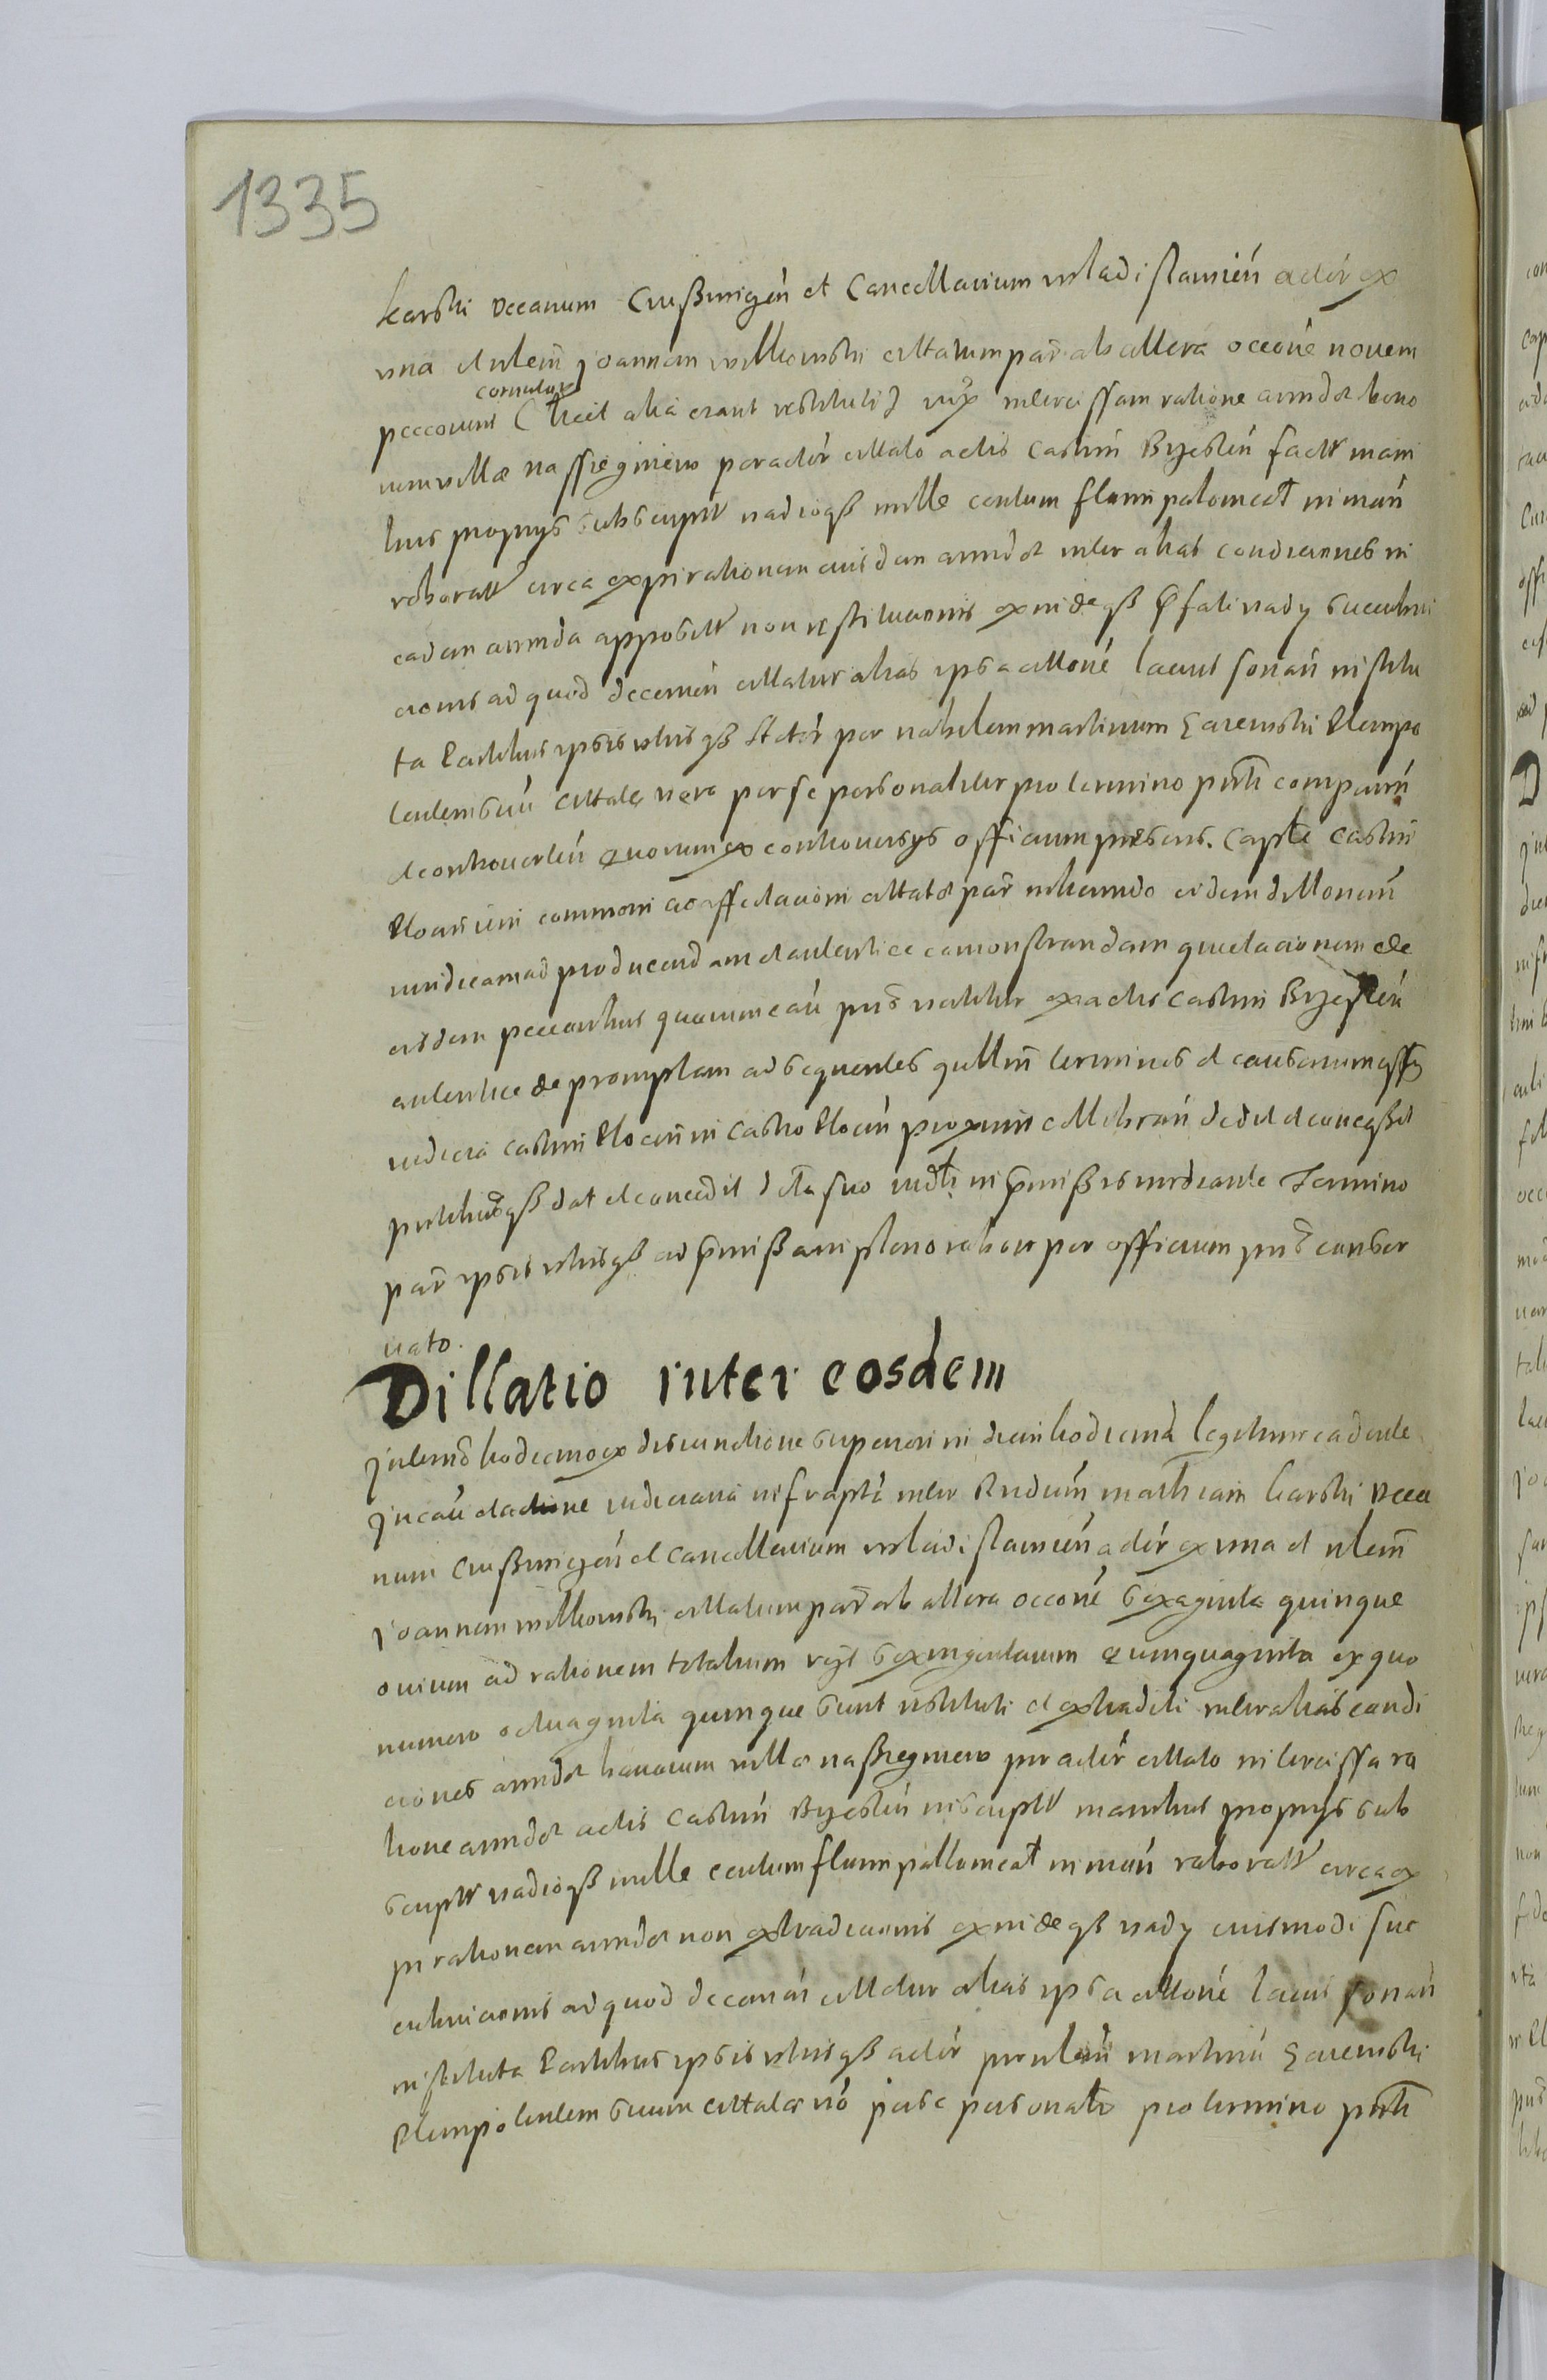 1335
karski decanum Crußwigen et Cancellarium wladislauien actor ex
una et nlem Joannem wilkowski citatum par ab altera occone nouem
peccorum cornutor (licet alia erant restituti) inter cissam ratione arendae bono
rum villae nassiegniewo per actor citato actis Castrin Brzesten fact mani
bus proprys subscript vadioqß mille centum floren polonical in man
roborat circa expirationem eiusdem arendae inter alias condiciones in
eadem arenda apposit non restitucionis exindeqß pfati vady succubui
cionis ad quod decernen citatur alias ipsa citatione lacius sonan institu
ta Partibus ipsis vtrisqß actor per nobilem martinum Zarewski Plenipo
tentem suu Citatae vero per se personaliter pro termino pnti comparen
et controuerten Quorum ex controuersys officium presens Capte Castrin
Plocarien commoni ac affectacioni citatae par inherendo eidem dillonem
iuridicam ad producendam et autentice comonstrandam quietacionem de
eisdem peccoribus quarum cau pns vertitur ex actis Castrin Brzesten
autentice depromptam ad sequentes quellm terminos et causarum offy
iudicia castrin Plocen in Castro Plocen proxime cellebran dedit et conceßit
prebuitqß dat et concedit dto suo indti in pmißis mediante Termino
par ipsis vtrisqß ad pmißam pleno robore per officium pns conser
uato.
Dillatio inter eosdem
In termo hodierno ex disiunctione superiori in diem hodierna legitime cadente
In cau et actione iudiciaria infrapta inter Rndum mathiam karski deca
num Crußwigen et Cancellarium wladislauien actor ex una et nlem
Joannem wilkowski citatum par ab altera occone sexaginta quinque
ouium ad rationem totalium vgt sexingentarum Quinquaginta ex quo
numero octuaginta quinque sunt restituti et extraditi inter alias condi
ciones arendae bonorum villae naßiegniewo per actor citato in tercissa ra
tione arendae actis Castrin Brzesten inscript manibus proprys sub
script vadioqß mille centum floren pollonical in man roborat circa ex
pirationem arendae non extradicionis exindeqß vady eiusmodi suc
cubuicionis ad quod decernen citatur alias ipsa citatione lacius sonan
instituta Partibus ipsis vtrisqß actor per nlem martinu Zarewski
Plenipotentem suum citatae vo per se personalr pro termino pnti